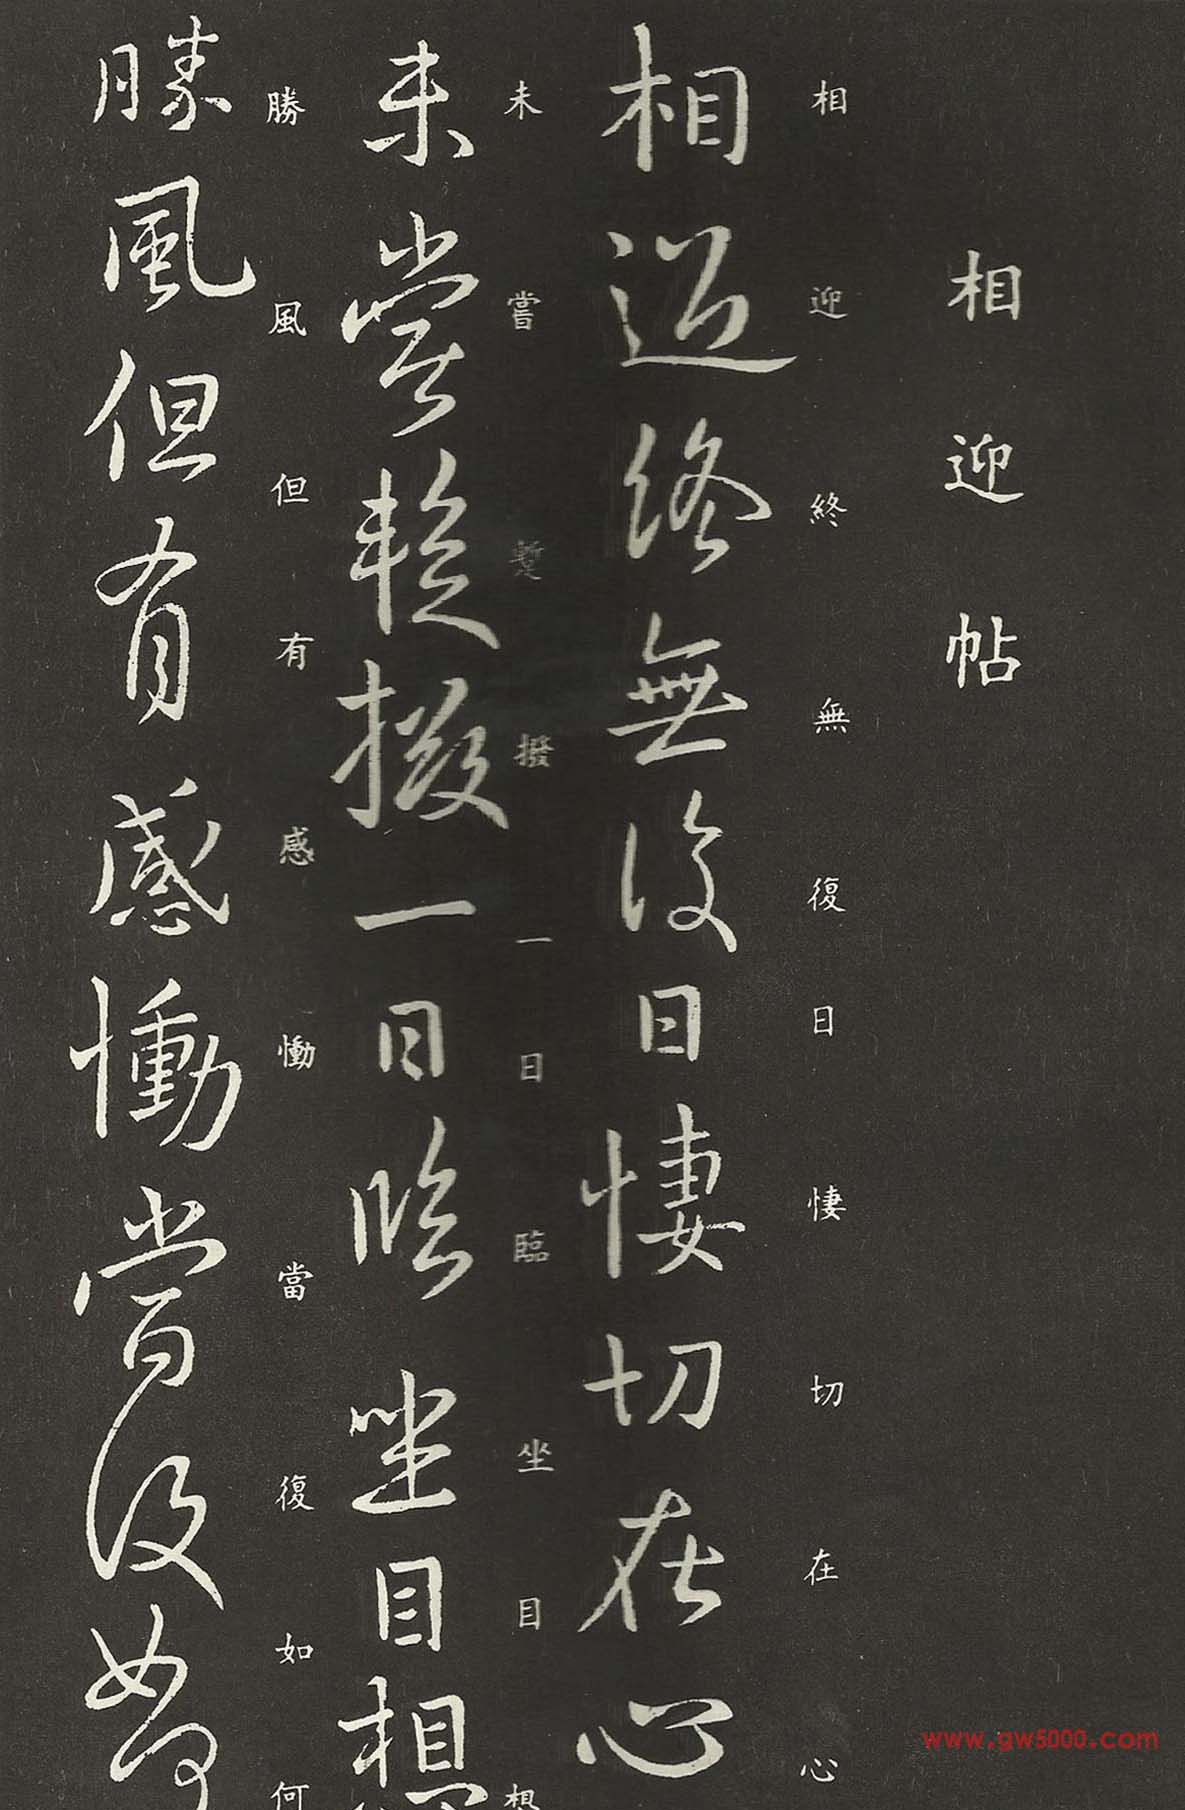 相迎帖
相迎終無復日悽切在心
相迎終無復日悽切在心
未嘗暫撥一日臨坐目想
未嘗暫撥一日臨坐目想
勝風但有感慟當復如何
勝風但有感慟當復如何
www.gw5000.com